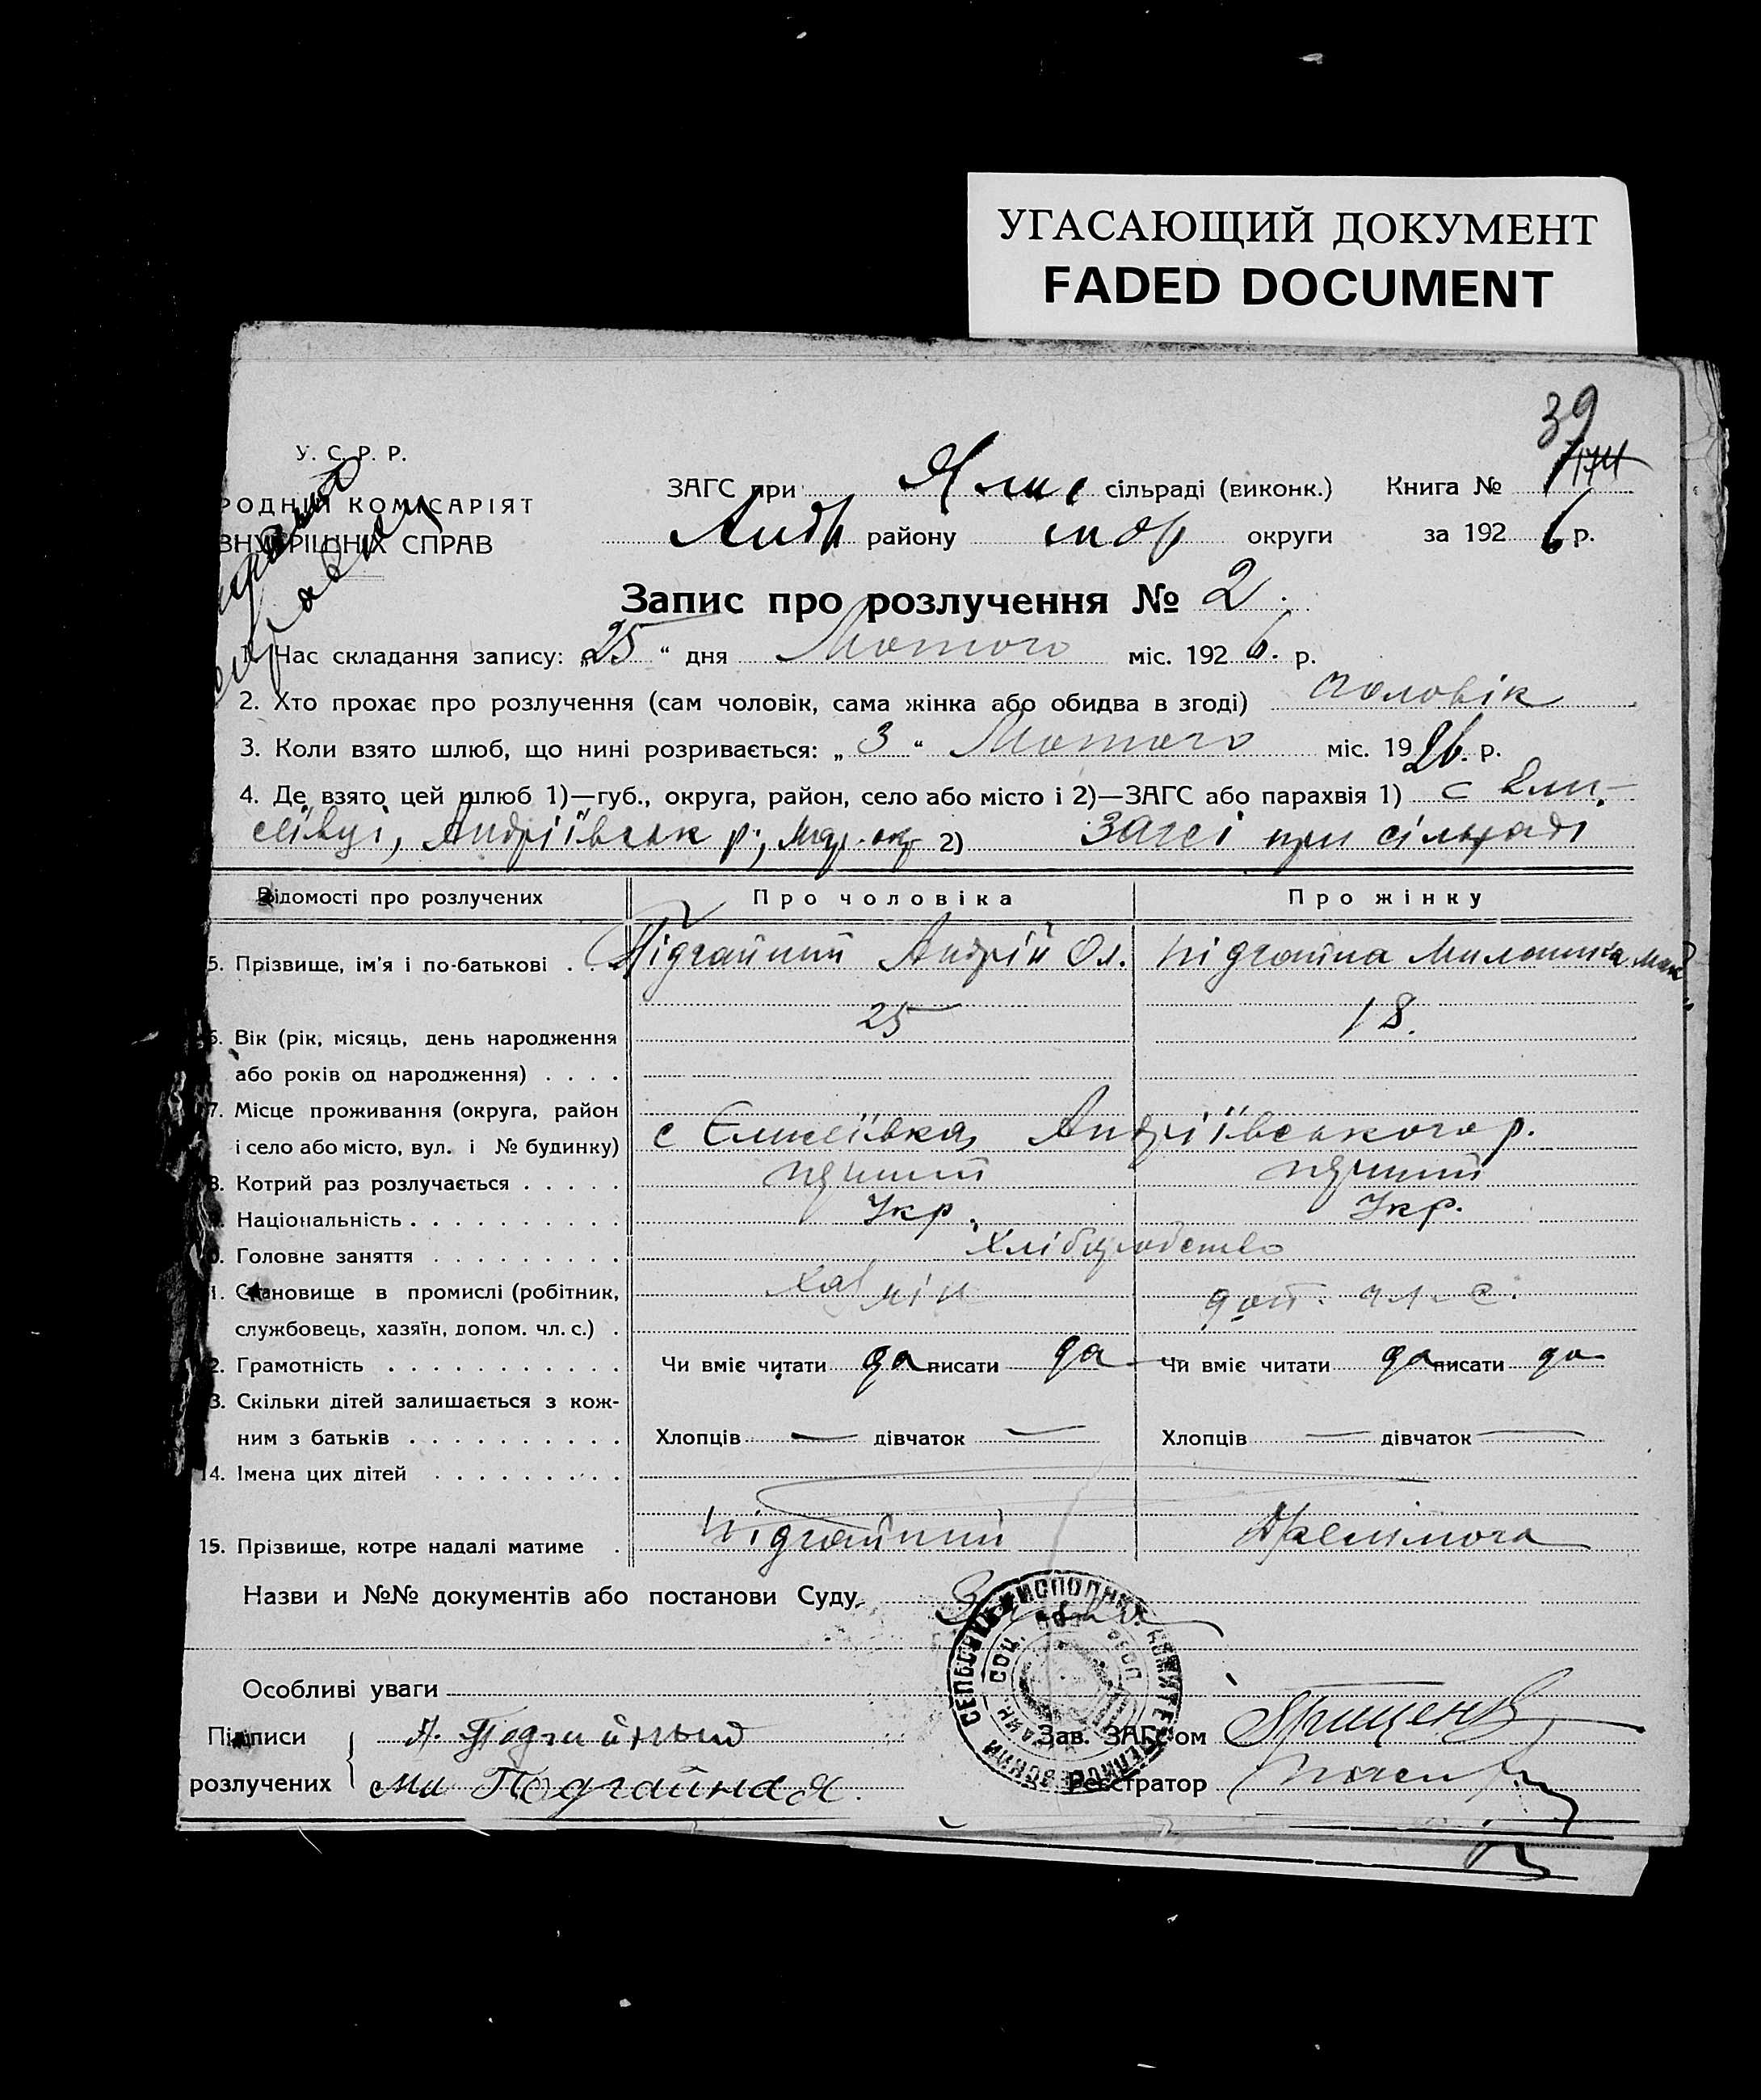 УГАСАЮЩИЙ ДОКУМЕНТ
FADED DOCUMENT
39
У. С. Р. Р.
РОДНИЙ КОМІСАРІЯТ
ВНУТРІШНІХ СПРАВ
ЗАГС при сільраді (виконк.) Книга № 174
Андр району мар округи за 1926 р.
Запис про розлучення № 2.
1. Час складання запису: „25“ дня Лютого міс. 1926. р.
2. Хто прохає про розлучення (сам чоловік, сама жінка або обидва в згоді) чоловік
3. Коли взято шлюб, що нині розривається: „3“ Лютого міс. 1926. р.
4. Де взято цей шлюб 1)—губ., округа, район, село або місто і 2)—ЗАГС або парахвія 1) с Ели-
сеївці, Андріївськ р; мар. окр 2) ЗАГСі при сільраді
Відомості про розлучених Про чоловіка Про жінку
5. Прізвище, ім'я і по-батькові . . Підгайний Андрій Ол. Підгайна
6. Вік (рік, місяць, день народження 25 18.
або років од народження) . . . .
7. Місце проживання (округа, район
і село або місто, вул. і № будинку) с Єлисеївка, Андріївського р.
8. Котрий раз розлучається . . . . . перший перший
Національність . . . . . . . . . . Укр. Укр.
0. Головне заняття . . . . . . . . . Хліборобство
1. Становище в промислі (робітник, доп. чл. с.
службовець, хазяїн, допом. чл. с.) .
2. Грамотність . . . . . . . . . . . Чи вміє читати да писати да Чи вміє читати да писати да
3. Скільки дітей залишається з кож-
ним з батьків . . . . . . . . . . Хлопців — дівчаток — Хлопців — дівчаток —
14. Імена цих дітей . . . . . . . . .
15. Прізвище, котре надалі матиме . Підгайний
Назви и №№ документів або постанови Суду
Особливі уваги
Підписи А. Подгайный Зав. ЗАГС'ом
розлучених Ми Подгайная. Реєстратор